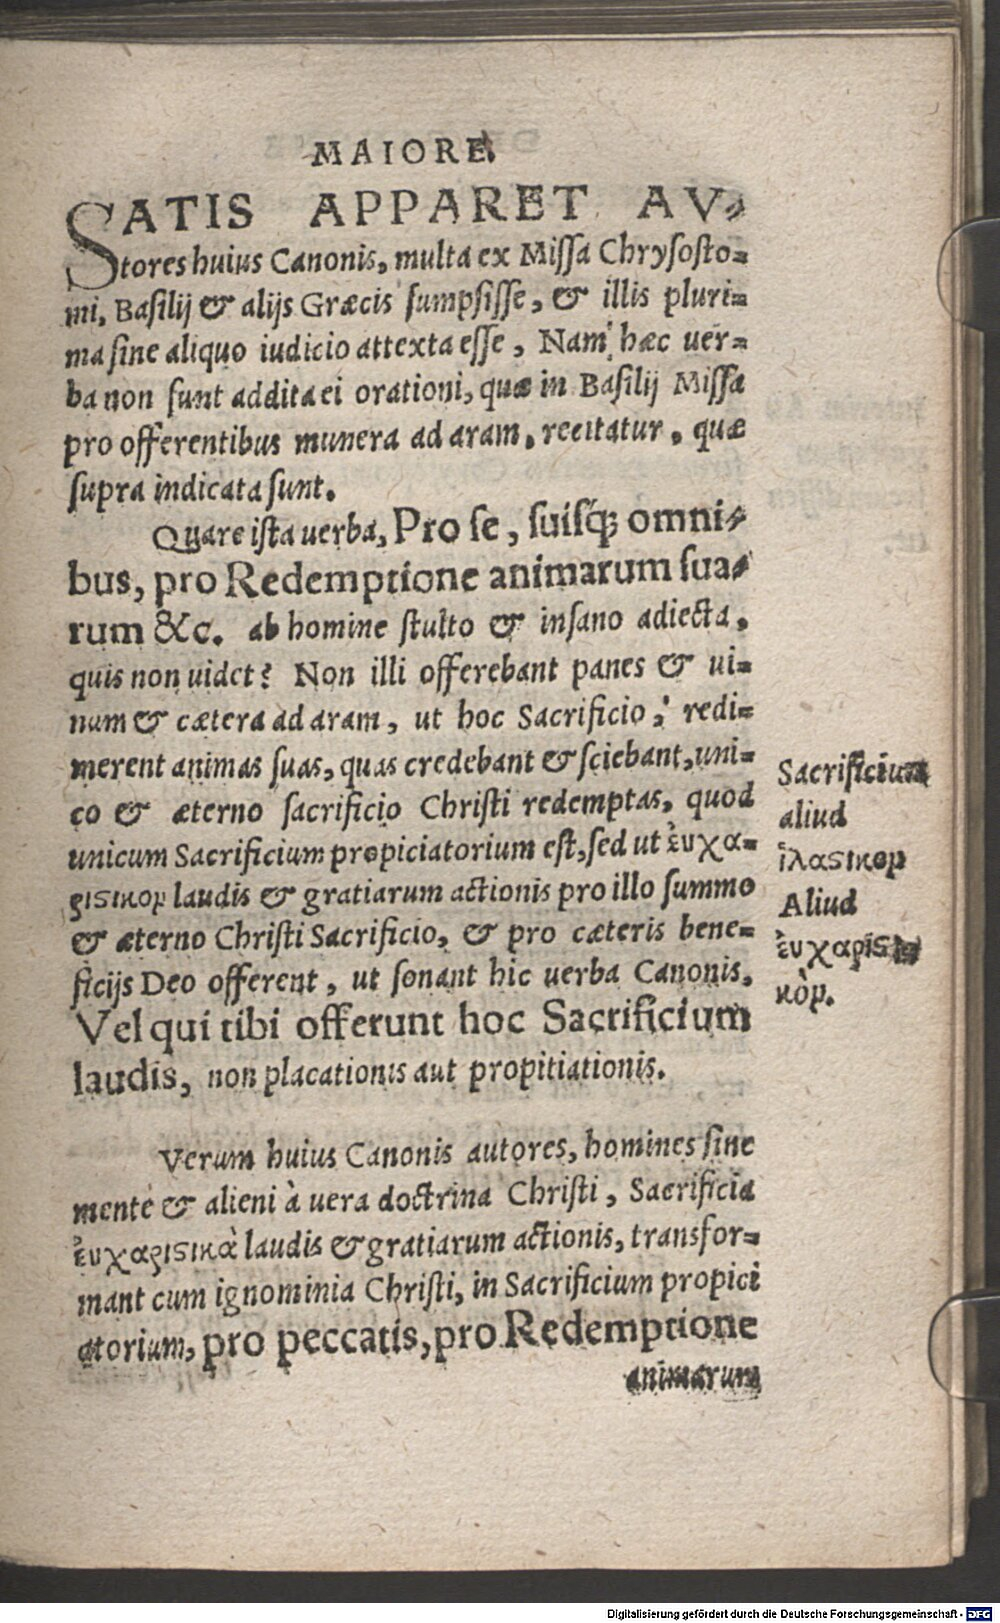 MAIORE.
SATIS APPARET AV-
stores huius Canonis, multa ex Missa Chrysosto-
mi, Basilij & alijs Græcis sumpsisse, & illis pluri-
ma sine aliquo iudicio attexta esse, Nam hæc uer-
ba non sunt addita ei orationi, quæ in Basilij Missa
pro offerentibus munera ad aram, recitatur, quæ
supra indicata sunt.
Quare ista uerba, Pro se, suisq́ꝫ omni-
bus, pro Redemptione animarum sua-
rum &c. ab homine stulto & insano adiecta,
quis non uidet? Non illi offerebant panes & ui-
num & cætera ad aram, ut hoc Sacrificio, redi-
merent animas suas, quas credebant & sciebant, uni-
co & æterno sacrificio Christi redemptas, quod
unicum Sacrificium propiciatorium est, sed ut ἐυχα-
ριϛικομ laudis & gratiarum actionis pro illo summo
& æterno Christi Sacrificio, & pro cæteris bene-
ficijs Deo offerent, ut sonant hic uerba Canonis.
Vel qui tibi offerunt hoc Sacrificium
laudis, non placationis aut propitiationis.
Verum huius Canonis autores, homines sine
mente & alieni à uera doctrina Christi, Sacrificia
ἐυχαριϛικὰ laudis & gratiarum actionis, transfor-
mant cum ignominia Christi, in Sacrificium propici
atorium, pro peccatis, pro Redemptione
animarum
Sacrificium
aliud
ἱλαϛικομ
Aliud
ἐυχαριϛι-
κὸμ.
Digitalisierung gefördert durch die Deutsche Forschungsgemeinschaft - DFG